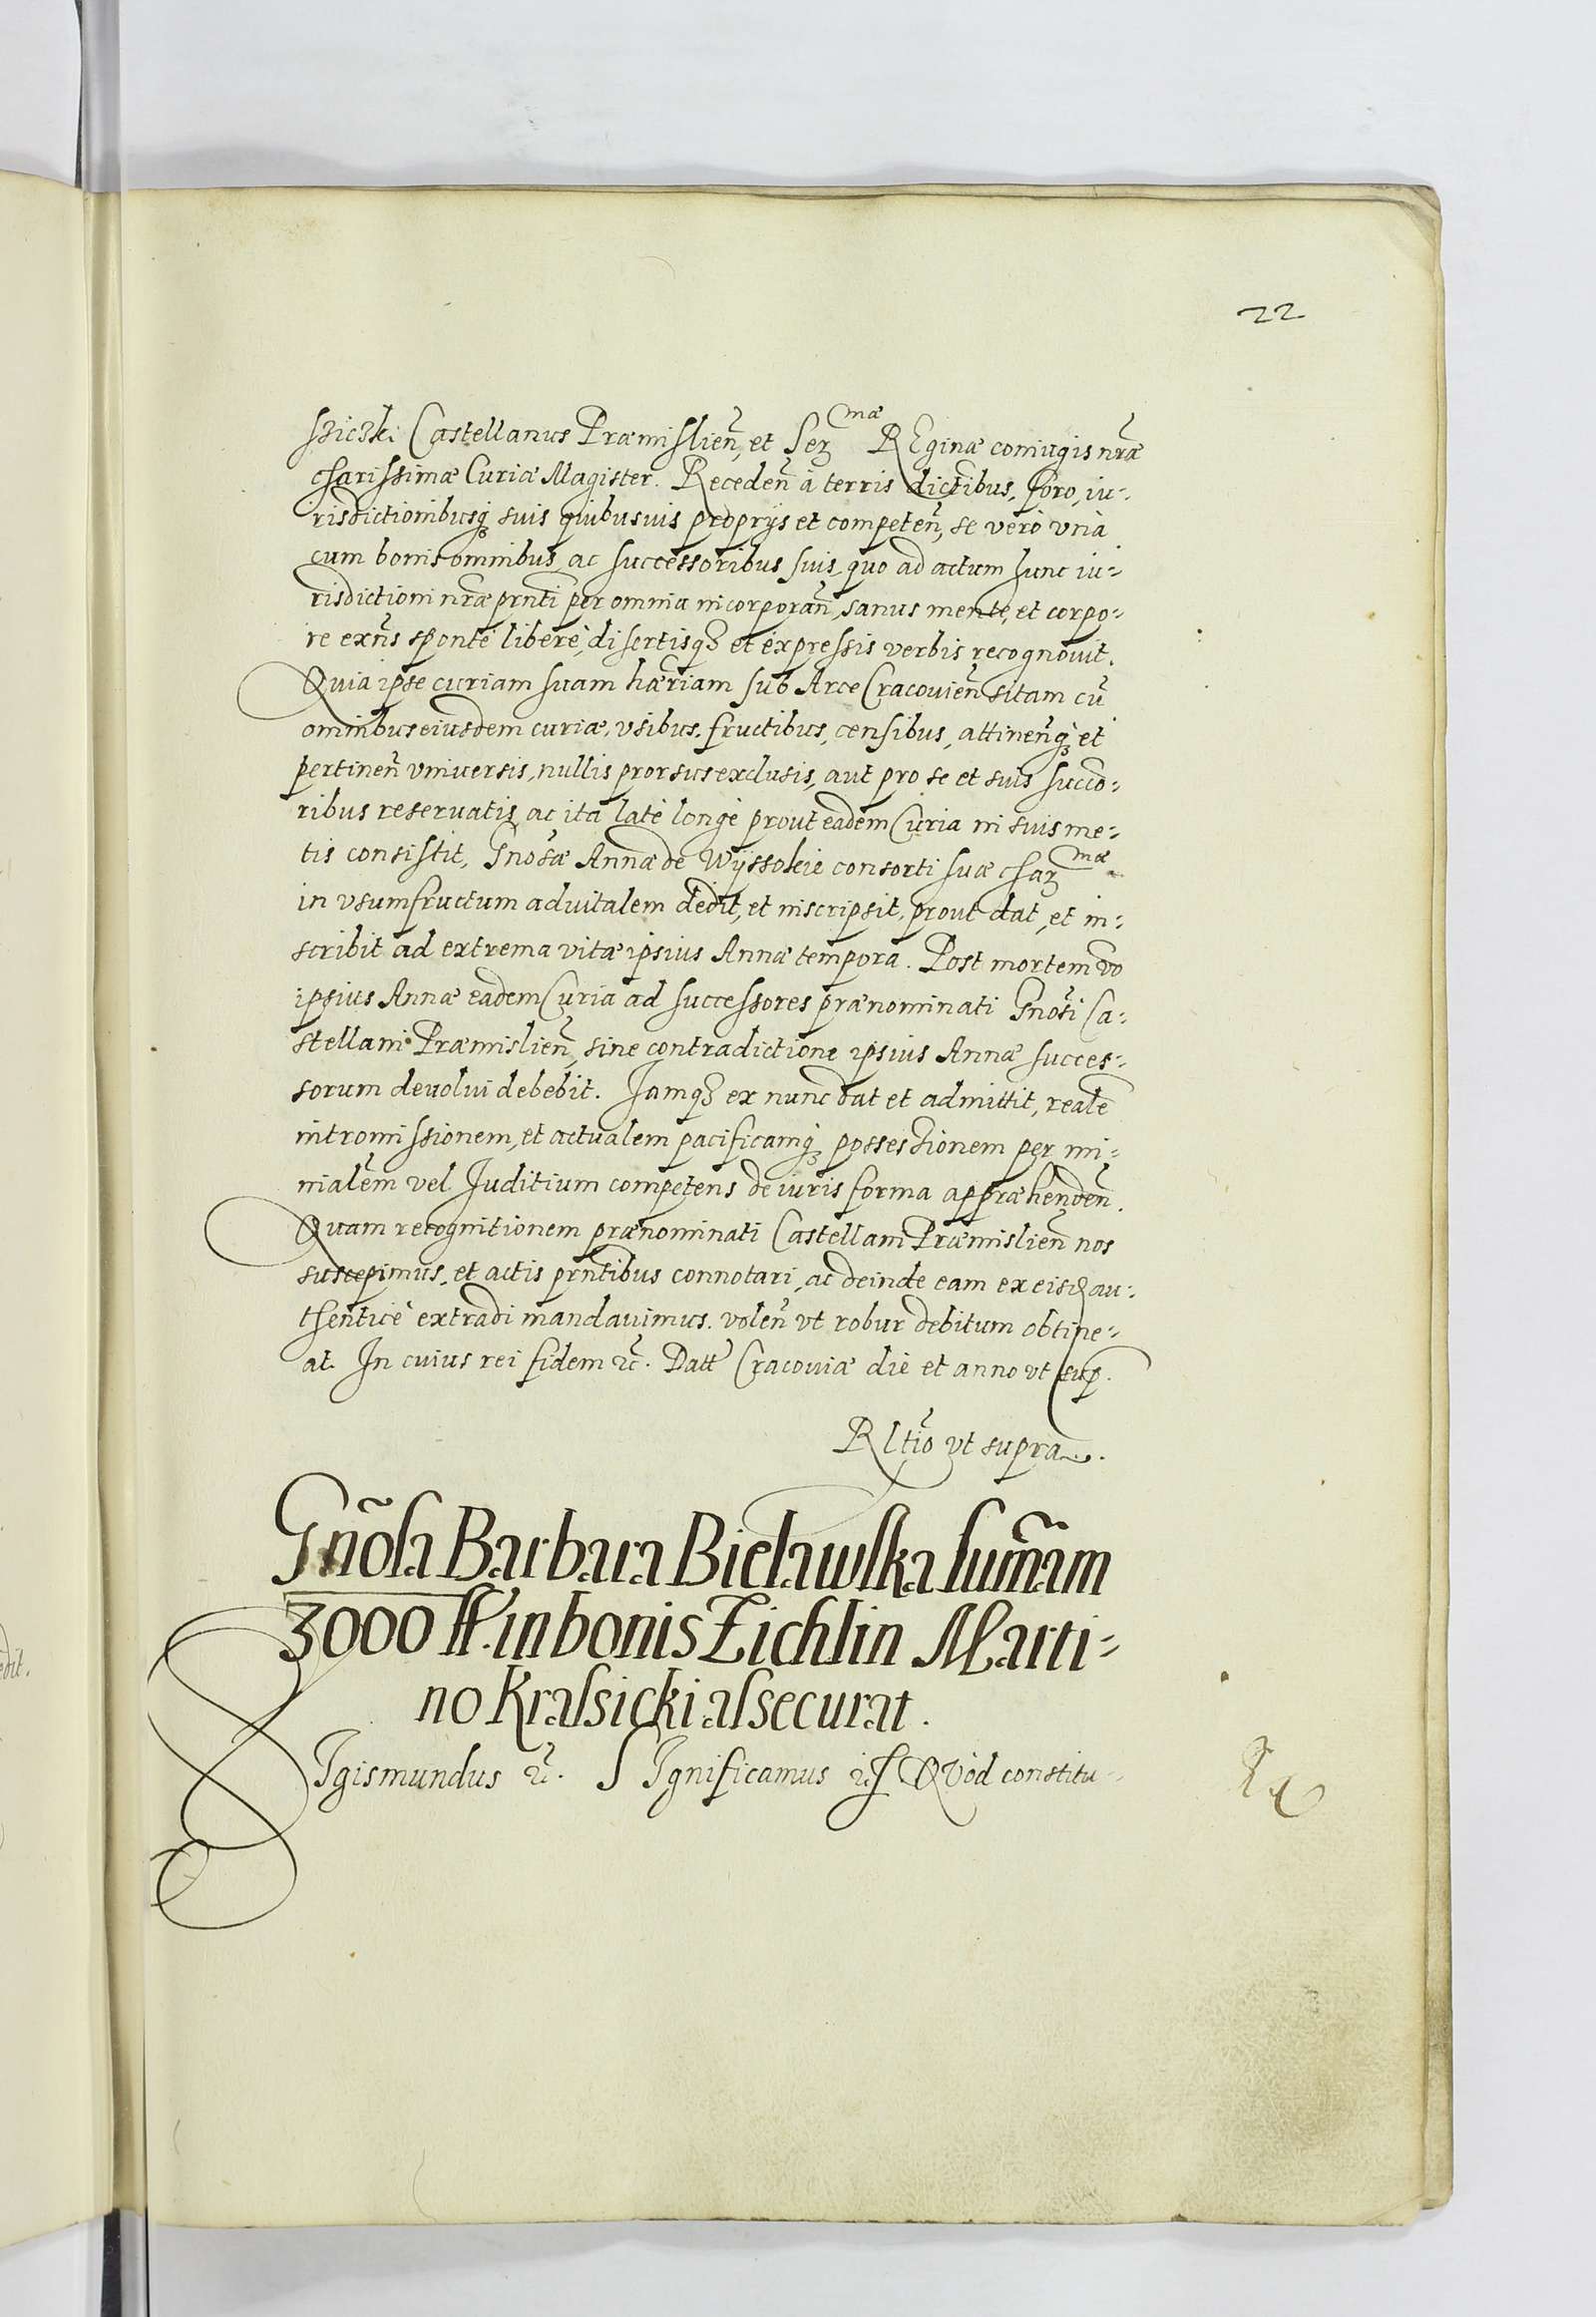 22
sziczki Castellanus Præmislien̄, et Ser mæ REginæ coniugis nr̄æ
charissimæ Curiæ Magister. Receden̄ à terris dictibus, foro, iu-
risdictionibusq3 suis quibusuis proprijs et competen̄, se verò vnà
cum bonis omnibus, ac successoribus suis, quo ad actum hunc iu-
risdictioni nr̄æ prn̄ti per omnia incorporan̄, sanus mente, et corpo-
re exn̄s sponte liberè, disertisq3 et expressis verbis recognouit.
Quia ipse curiam suam hær̄iam sub Arce Cracouien̄ sitam cū
omnibus eiusdem curiæ, vsibus, fructibus, censibus, attinen̄q3 et
pertinen̄ vniuersis, nullis prorsus exclusis, aut pro se et suis succo-
ribus reseruatis, ac ita latè longè prout eadem Curia in suis me-
tis consistit, Gnosæ Annæ de Wijssokie consorti suæ char mæ
in vsumfructum aduitalem dedit, et inscripsit, prout dat, et in-
scribit ad extrema vitæ ipsius Annæ tempora. Post mortem vo
ipsius Annæ eadem Curia ad successores prænominati Gnosi Ca-
stellani Præmislien̄, sine contradictione ipsius Annæ succes-
sorum deuolui debebit. Jamq3 ex nunc dat et admittit, realē
intromissionem, et actualem pacificamq3 possessionem per mi-
nialēm vel Juditium competens de iuris forma appræhenden̄.
Quam recognitionem prænominati Castellani Præmislien̄ nos
suscepimus, et actis prn̄tibus connotari, ac deinde eam ex eisd au-
thenticè extradi mandauimus. volen̄ vt robur debitum obtine-
at. In cuius rei fidem etc̄. Datt Cracouiæ die et anno vt sup.
Rltio vt supra.
Gñosa Barbara Bielawska sum̄am
3000 ff. in bonis Zichlin Marti-
no Krassicki assecurat.
SIgismundus etc̄. SIgnificamus etc QVòd constitu-